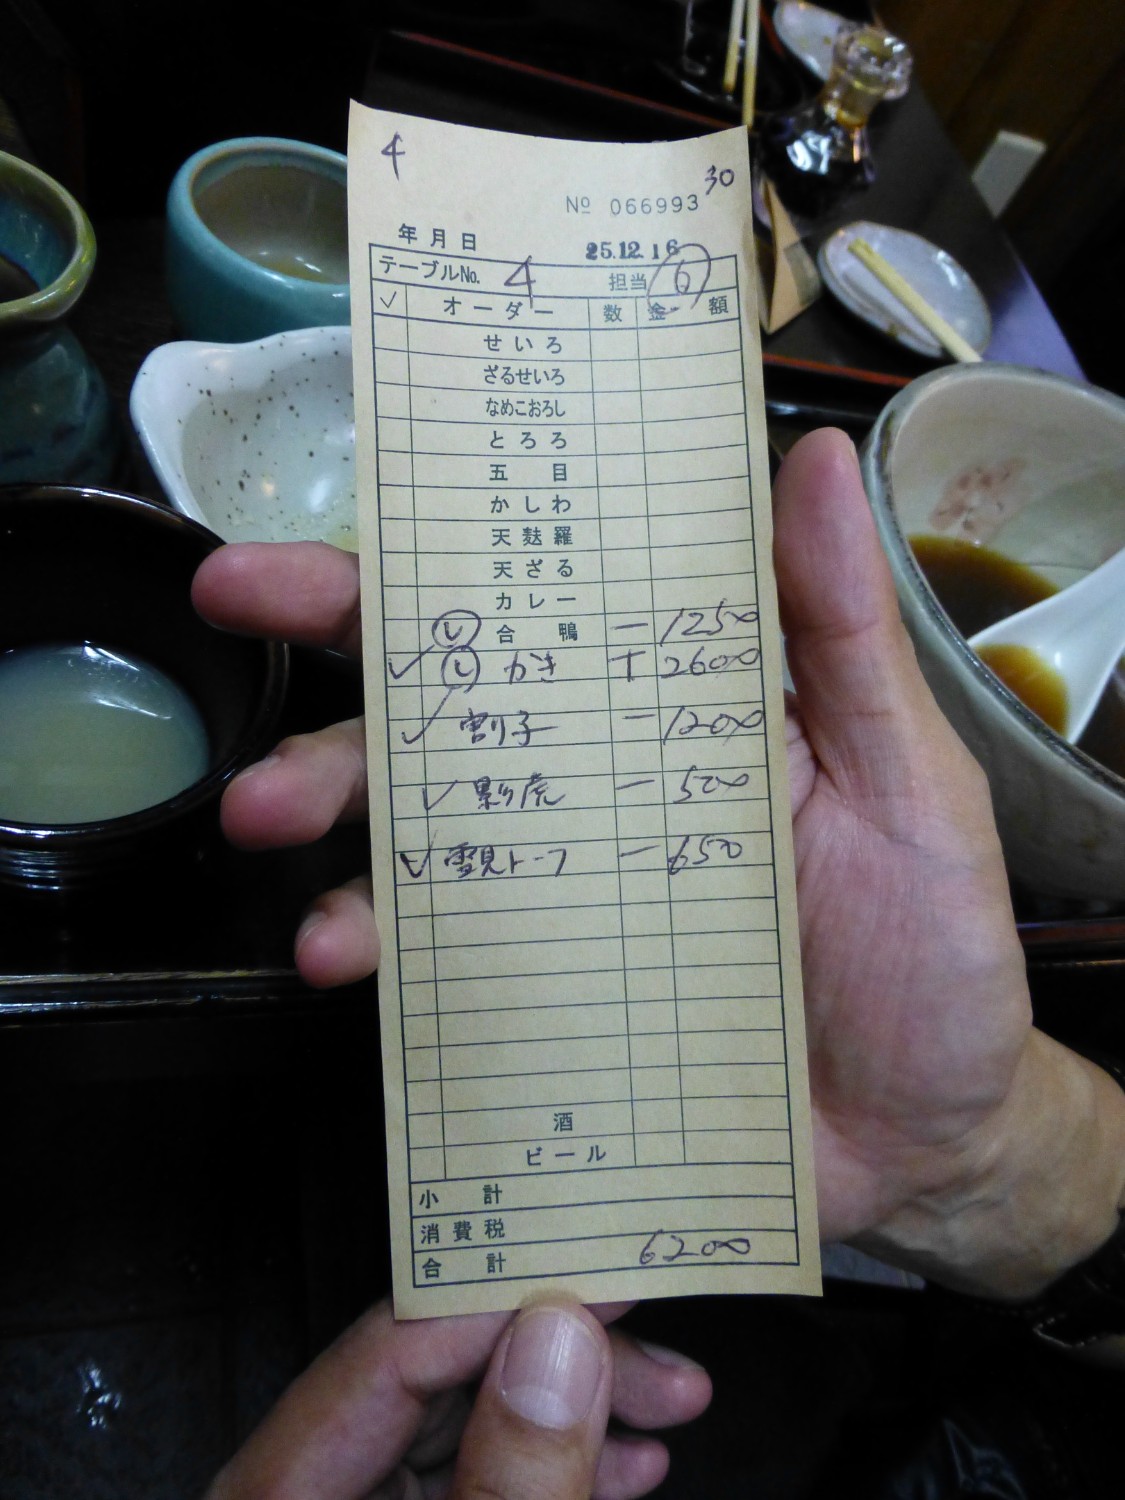 4
30
№ 066993
年 月 日 25.12.16
テーブルNo. 4 担当 6
✓ オーダー 数 金 額
せいろ
ざるせいろ
なめこおろし
とろろ
五目
かしわ
天麩羅
天ざる
カレー
合鴨 一 1250
かき T 2600
割子 一 1200
影虎 一 500
雪見トーフ 一 650
酒
ビール
小計
消費税
合計 6200